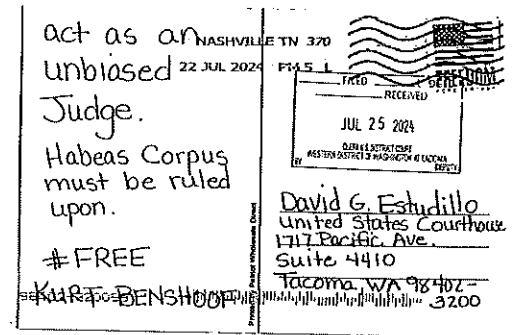 act as an
unbiased
Judge.
Habeas Corpus
must be ruled
upon.
#FREE
KURT BENSHOOF
NASHVILLE TN 370
22 JUL 2024 PM 5 L
FILED
RECEIVED
JUL 25 2024
CLERK U.S. DISTRICT COURT
WESTERN DISTRICT OF WASHINGTON AT TACOMA
BY DEPUTY
David G. Estudillo
United States Courthouse
1717 Pacific Ave.
Suite 4410
Tacoma, WA 98402-
3200